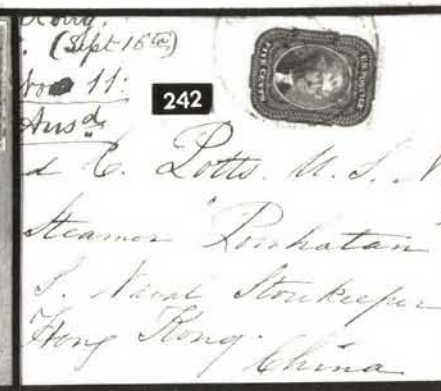 Kong.
(Sept 15th)
No 11:
Ansd
242
FIVE CENTS
U.S. POSTAGE
d C. Potts. U. S. N
Steamer "Powhatan"
S. Naval Storekeeper
Hong Kong.
China